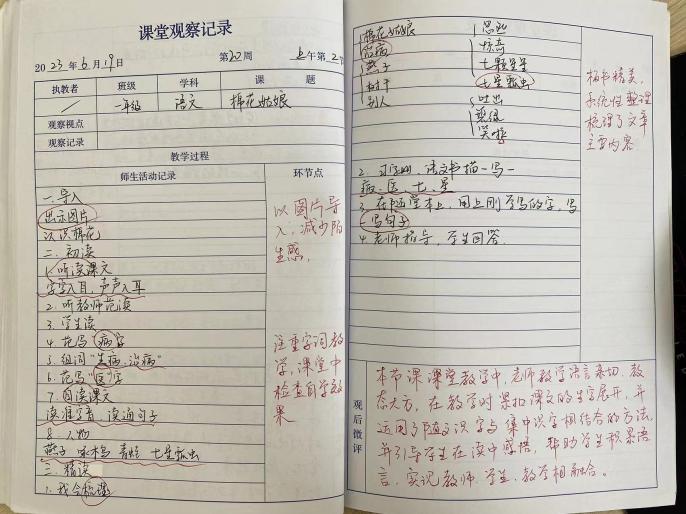 课堂观察记录
2023年6月19日 第20周 上午第2节
执教者 班级 学科 课 题
／ 一年级 语文 棉花姑娘
观察视点
观察记录
教学过程
师生活动记录 环节点
一.导入
出示图片
认识棉花
以图片导
入,减少陌
生感,
二.初读
1.听读课文
字字入耳,声声入耳
2.听教师范读
3.学生读
4.范写"病"字
5.组词"生病.治病"
6.范写"医"字
7.自读课文
读准字音,读通句子
8.人物
燕子 啄木鸟 青蛙 七星瓢虫
三.精读
1.我会梳理
注重字词教
学,课堂中
检查自学效
果
棉花姑娘
治病
燕子
树干
别人
惊奇
七颗星星
七星瓢虫
吐出
碧绿
笑啦
板书精美,
系统性整理
梳理了文章
主要内容
2. 语文书描一写一
病、医、七、星
3.在 堂本上,用上刚学写的字,写
写句子
4.老师指导,学生回答
观后微评
本节课课堂教学中,老师教学语言亲切、教
态大方,在教学时紧扣课文的生字展开,并
运用了随文识字与集中识字相结合的方法,
并引导学生在读中感悟,帮助学生积累语
言,实现教师、学生、教学相融合。